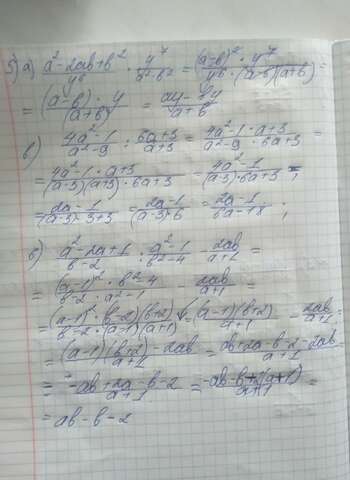 5) а) a² - 2ab + b² / y⁶ · y⁷ / a² - b² = (a-b)² · y⁷ / y⁶ · (a-b)(a+b) =
= (a-b) · y / (a+b) = ay - by / a+b
б) 4a² - 1 / a² - 9 : 6a+3 / a+3 = 4a² - 1 · a+3 / a² - 9 · 6a+3 =
= 4a² - 1 · a+3 / (a-3)(a+3) · 6a+3 = 4a² - 1 / (a-3) · 6a+3 =
= 2a - 1 / (a-3) · 3+3 = 2a - 1 / (a-3) · 6 = 2a - 1 / 6a - 18 ;
в) a² - 2a + 1 / b - 2 : a² - 1 / b² - 4 - 2ab / a+1 =
= (a-1)² · b² - 4 / b - 2 · a² - 1 - 2ab / a+1 =
= (a-1)² · (b-2)(b+2) / b - 2 · (a-1)(a+1) = (a-1)(b+2) / a+1 - 2ab / a+1 =
= (a-1)(b+2) - 2ab / a+1 = ab + 2a - b - 2 - 2ab / a+1 =
= -ab + 2a - b - 2 / a+1 =
= ab - b - 2